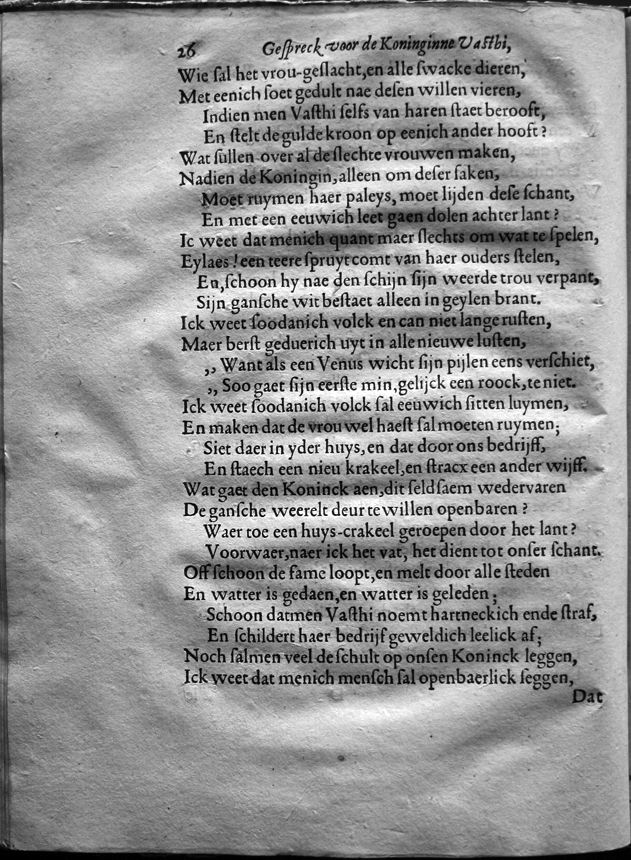 26 Geſpreck voor de Koninginne Vaſthi,
Wie ſal het vrou-geſlacht,en alle ſwacke dieren,
Met eenich ſoet gedult nae deſen willen vieren,
Indien men Vaſthi ſelfs van haren ſtaet berooft,
En ſtelt de gulde kroon op eenich ander hooft?
Wat ſullen over al de ſlechte vrouwen maken,
Nadien de Koningin,alleen om deſer ſaken,
Moet ruymen haer paleys, moet lijden deſe ſchant,
En met een eeuwich leet gaen dolen achter lant?
Ic weet dat menich quant maer ſlechts om wat te ſpelen,
Eylaes! een teere ſpruyt comt van haer ouders ſtelen,
En,ſchoon hy nae den ſchijn ſijn weerde trou verpant,
Sijn ganſche wit beſtaet alleen in geylen brant.
Ick weet ſoodanich volck en can niet lange ruſten,
Maer berſt geduerich uyt in alle nieuwe luſten,
,, Want als een Venus wicht ſijn pijlen eens verſchiet,
,, Soo gaet ſijn eerſte min,gelijck een roock,te niet.
Ick weet ſoodanich volck ſal eeuwich ſitten luymen,
En maken dat de vrou wel haeſt ſal moeten ruymen;
Siet daer in yder huys,en dat door ons bedrijff,
En ſtaech een nieu krakeel,en ſtracx een ander wijff.
Wat gaet den Koninck aen,dit ſeldſaem wedervaren
De ganſche weerelt deur te willen openbaren?
Waer toe een huys-crakeel geroepen door het lant?
Voorwaer,naer ick het vat, het dient tot onſer ſchant.
Off ſchoon de fame loopt,en melt door alle ſteden
En watter is gedaen,en watter is geleden;
Schoon datmen Vaſthi noemt hartneckich ende ſtraf,
En ſchildert haer bedrijf geweldich leelick af;
Noch ſalmen veel de ſchult op onſen Koninck leggen,
Ick weet dat menich menſch ſal openbaerlick ſeggen,
Dat